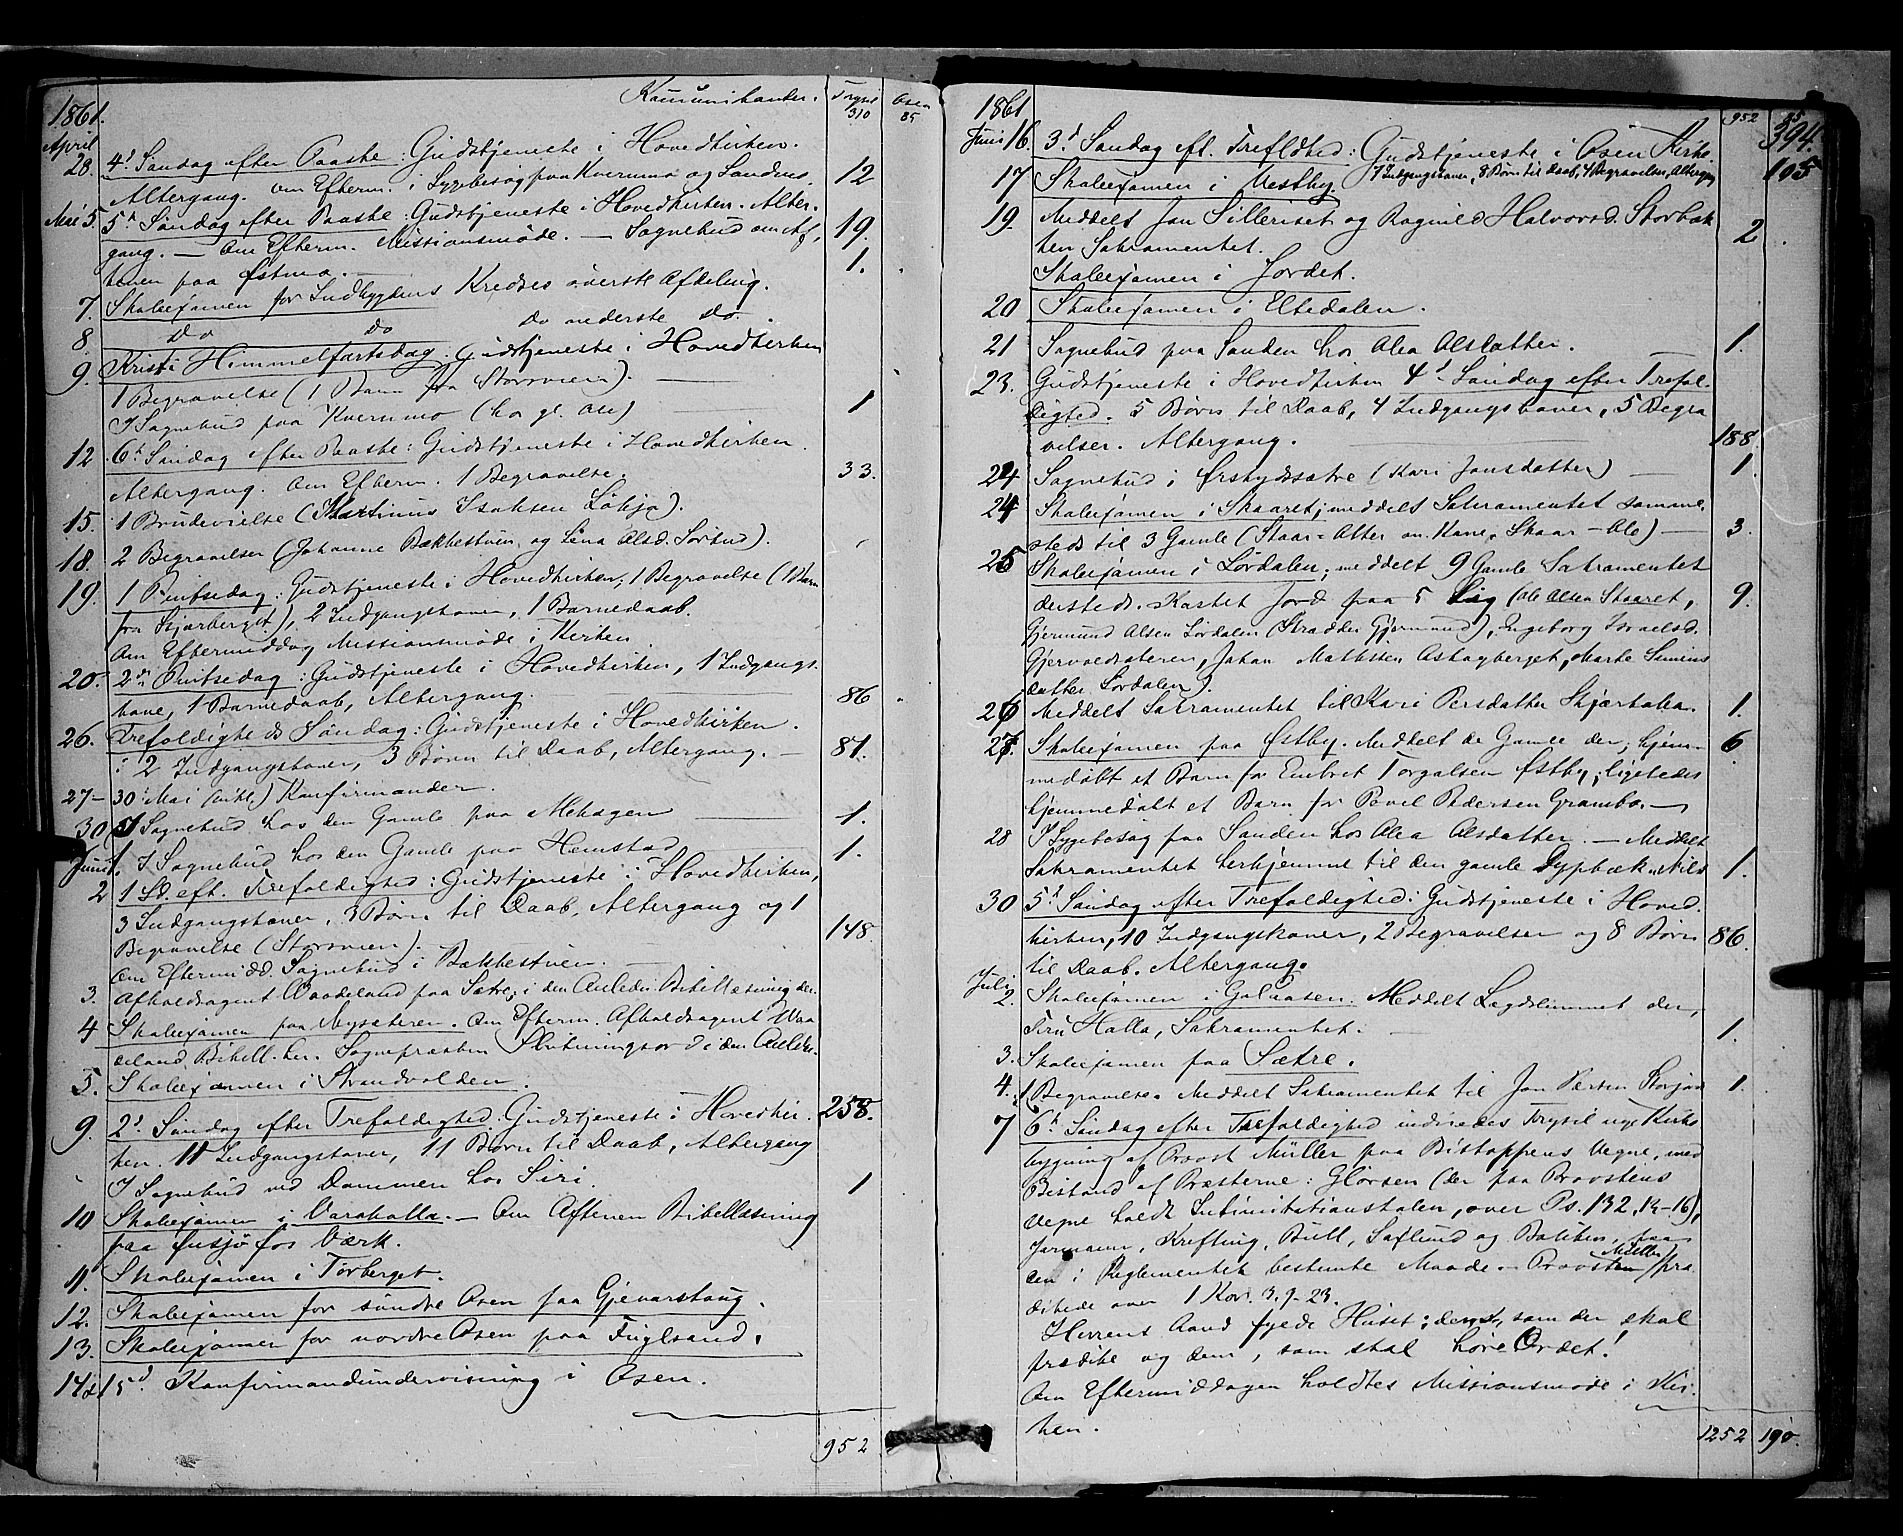 1861. Kommunikanter. Trysil 310 Osen 85
April 28. 4d Søndag efter Paaske: Gudstjeneste i Hovedkirken.
Altergang. om Efterm. i Sygebesøg paa Kvernmo og Sanden. 12
Mai 5. 5d Søndag efter Paaske: Gudstjeneste i Hovedkirken. Alter-
gang. — Om Efterm. Missionsmøde. — Sognebud om Af- 19.
tenen paa Østmo. 1.
7. Skoleexamen for Indbygdens Kredses øverste Afdeling.
8. Do Do Do nederste Do.
9. Kristi Himmelfartsdag. Gudstjeneste i Hovedkirken
1 Begravelse (1 Barn fra Storveien).
I Sognebud paa Kvernmo (hos gl. Ole) 1
12 6d Søndag efter Paaske: Gudstjeneste i Hovedkirken
Altergang. Om Efterm. 1 Begravelse. 33.
15. 1 Brudevielse (Martinus Isaksen Løkja).
18. 2 Begravelser (Johanne Bakkestuen og Lena Olsd. Sørhud).
19. 1 Pintsedag: Gudstjeneste i Hovedkirken; 1 Begravelse (1 Barn
fra Skjærberget), 2 Indgangskoner, 1 Barnedaab.
Om Eftermiddag Missionsmøde i Kirken
20. 2den Pintsedag: Gudstjeneste i Hovedkirken, 1 Indgangs-
kone, 1 Barnedaab, Altergang. 86
26. Trefoldigheds Søndag: Gudstjeneste i Hovedkirken.
2 Indgangskoner, 3 Børn til Daab, Altergang. — 87.
27–30 Mai (inkl.) Konfirmander.
30 I Sognebud hos den Gamle paa Mehagen 1.
Juni 1. I Sognebud hos den Gamle paa Hemstad 1.
2 1 Sd. eft. Trefoldighed: Gudstjeneste i Hovedkirken,
3 Indgangskoner, 3 Børn til Daab, Altergang og 1 148.
Begravelse (Storveien).
Om Eftermidd. Sognebud i Bakkestuen.
3. Afholdsagent Waadeland paa Sætre; i den Anledn. Bibellæsning der.
4 Skoleexamen paa Nysæteren. Om Efterm. Afholdsagent Waa-
deland Bibell. her. Sognepræsten Slutningsord i den Anledn.
5. Skoleexamen i Strandvolden.
9. 2d Søndag efter Trefoldighed: Gudstjeneste i Hovedkir- 258.
ken. 11 Indgangskoner, 11 Børn til Daab, Altergang
I Sognebud ved Dammen hos Siri. 1
10 Skoleexamen i Varaholla. — Om Aftenen Bibellæsning
paa Fnsjøfos Værk.
11. Skoleexamen i Tørberget.
12. Skoleexamen for søndre Osen paa Gjevarstang.
13. Skoleexamen for nordre Osen paa Fuglsand.
14 & 15d Konfirmandundervisning i Osen.
952
1861 952 85 394.
Juni 16. 3d Søndag eft. Trefldhed: Gudstjeneste i Osen Kirke.
7 Indgangskoner, 8 Børn til Daab, 4 Begravelser, Altergang 105
17 Skoleexamen i Vestby.
19. Meddelt Jon Silleriset og Ragnild Halvorsd. Storbak-
ken Sakramentet. 2
Skoleexamen i Jordet.
20 Skoleexamen i Eltedalen.
21 Sognebud paa Sanden hos Olea Olsdatter. 1.
23. Gudstjeneste i Hovedkirken 4d Søndag efter Trefol-
dighed. 5 Børn til Daab, 4 Indgangskoner, 5 Begra-
velser. Altergang. 188
24 Sognebud i Ørskydssætre (Kari Jonsdatter) 1.
24 Skoleexamen i Skaaret; meddelt Sakramentet samme-
steds til 3 Gamle (Skaar-Atter m. Kone, Skaar-Ole) — 3.
25 Skoleexamen i Lørdalen; meddelt 9 Gamle Sakramentet
dersteds. Kastet Jord paa 5 Lig (Ole Olsen Skaaret, 9.
Gjermund Olsen Lørdalen (Stradde Gjermund), Ingeborg Israelsd.
Gjervoldsæteren, Johan Mathisen Askagberget, Marte Simens-
datter Lørdalen).
26 Meddelt Sakramentet til Kari Persdatter Skjærholen. 1.
27. Skoleexamen paa Østby. Meddelt de Gamle der, hjem- 6
medøbt et Barn for Embret Torgalsen Østby; ligeledes
hjemmedøbt et Barn for Povel Pedersen Grønbo. —
28 I Sygebesøg paa Sanden hos Olea Olsdatter. — Meddelt
Sakramentet herhjemme til den gamle Dypbæk-Nils 1.
30 5d Søndag efter Trefoldighed: Gudstjeneste i Hoved-
kirken, 10 Indgangskoner, 2 Begravelser og 8 Børn 86.
til Daab. Altergang.
Juli 2. Skoleexamen i Galaasen. Meddelt Lægdslemmet der,
Tru Halla, Sakramentet. 1.
3. Skoleexamen paa Sætre.
4. 1 Begravelse. Meddelt Sakramentet til Jon Persen Storjord 1.
7 6d Søndag efter Trefoldighed indviedes Trysil nye Kirke-
bygning af Provst Müller paa Biskoppens Vegne, med
Bistand af Præsterne: Glørsen (der paa Provstens
Vegne holdt Intimitationstalen, over Ps. 132, 13–16),
Jormann, Krefting, Bull, Saxlund og Bakken, paa
den i Reglementet bestemte Maade. — Provsten Müller præ-
dikede over 1 Kor. 3, 9–23.
Herrens Aand fylde Huset; den, som der skal
prædike og dem, som skal høre Ordet!
Om Eftermiddagen holdtes Missionsmøde i Kir-
ken. 1252 190.